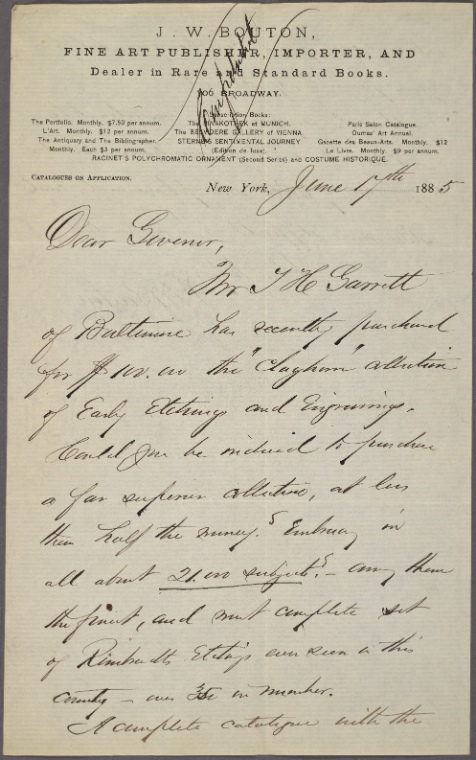 J. W. BOUTON,
FINE ART PUBLISHER, IMPORTER, AND
Dealer in Rare and Standard Books.
706 BROADWAY.
Subscription Books:
The Portfolio. Monthly. $7.50 per annum.
L'Art. Monthly. $12 per annum.
The Antiquary and The Bibliographer.
Monthly. Each $3 per annum.
The PINAKOTHEK of MUNICH.
The BELVEDERE GALLERY of VIENNA
STERNE'S SENTIMENTAL JOURNEY
(Edition de luxe).
Paris Salon Catalogue.
Dumas' Art Annual.
Gazette des Beaux-Arts. Monthly. $12
Le Livre. Monthly. $9 per annum.
RACINET'S POLYCHROMATIC ORNAMENT (Second Series) and COSTUME HISTORIQUE.
CATALOGUES ON APPLICATION.
New York, June 17th 1885
Dear Govenor,
Mr T H Garrett
of Baltimore has recently purchased
for $100.000 the "Claghorn" collection
of Early Etchings and Engravings.
Could you be induced to purchase
a far superior collection, at less
then half the money? Embracing in
all about 21.000 subjects? — among them
the finest, and most complete set
of Rimbrandts Etchings ever seen in this
country — over 350 in number.
A complete catalogue with the